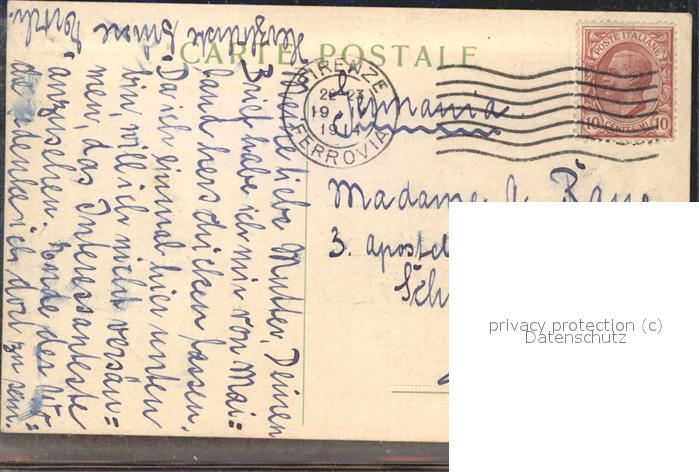 CARTE POSTALE
FIRENZE
22-23
19
1914
FERROVIA
POSTE ITALIANE
10 CENTESIMI 10
Germania
Madame
3. apostel
Meine liebe Mutter, Deinen
Brief habe ich mir von Mai=
land herschicken lassen.
Da ich einmal hier unten
bin, will ich nicht versäu=
men, das Interessanteste
anzusehen. Ende der Wo=
che denke ich dort zu sein.
Herzlichste Grüsse
privacy protection (c)
Datenschutz